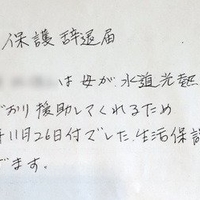 保護辞退届
は母が水道光熱
がり援助してくれるため
11月26日付でした生活保護
ます。